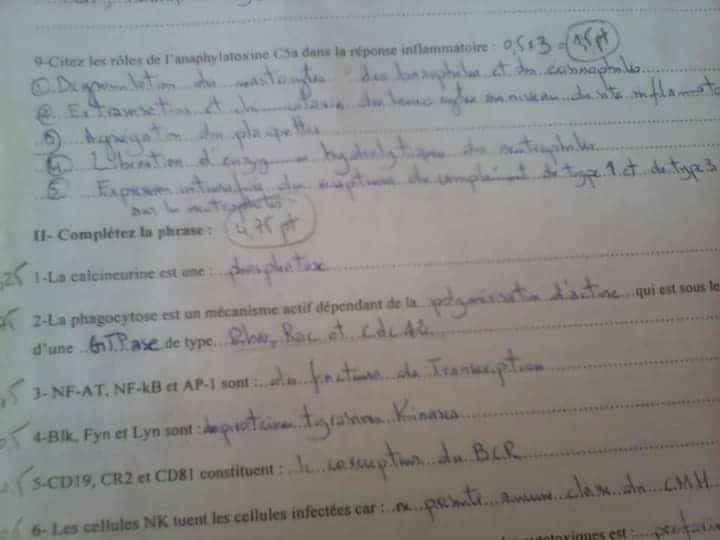 9-Citez les rôles de l'anaphylatoxine C5a dans la réponse inflammatoire : 0,5 x 3 = 1,5 pt
① Degranulation des mastocytes des basophiles et des eosinophiles
② et des leucocytes au niveau du site inflammato
③ Agregation des plaquettes
④ Libération d'enzymes hydrolytiques des neutrophiles
⑤ Expression des recepteurs du complement de type 1 et de type 3
sur les neutrophiles
II- Complétez la phrase : 4,75 pt
,25 1-La calcineurine est une : phosphatase
2-La phagocytose est un mécanisme actif dépendant de la polymerisation d'actine qui est sous le
d'une GTPase de type Rho, Rac et Cdc 42
3- NF-AT, NF-kB et AP-1 sont : des facteurs de Transcription
4-Blk, Fyn et Lyn sont : des proteines tyrosines Kinases
5-CD19, CR2 et CD81 constituent : le corecepteur du BCR
6- Les cellules NK tuent les cellules infectées car : ne presente aucune classe du CMH
est :